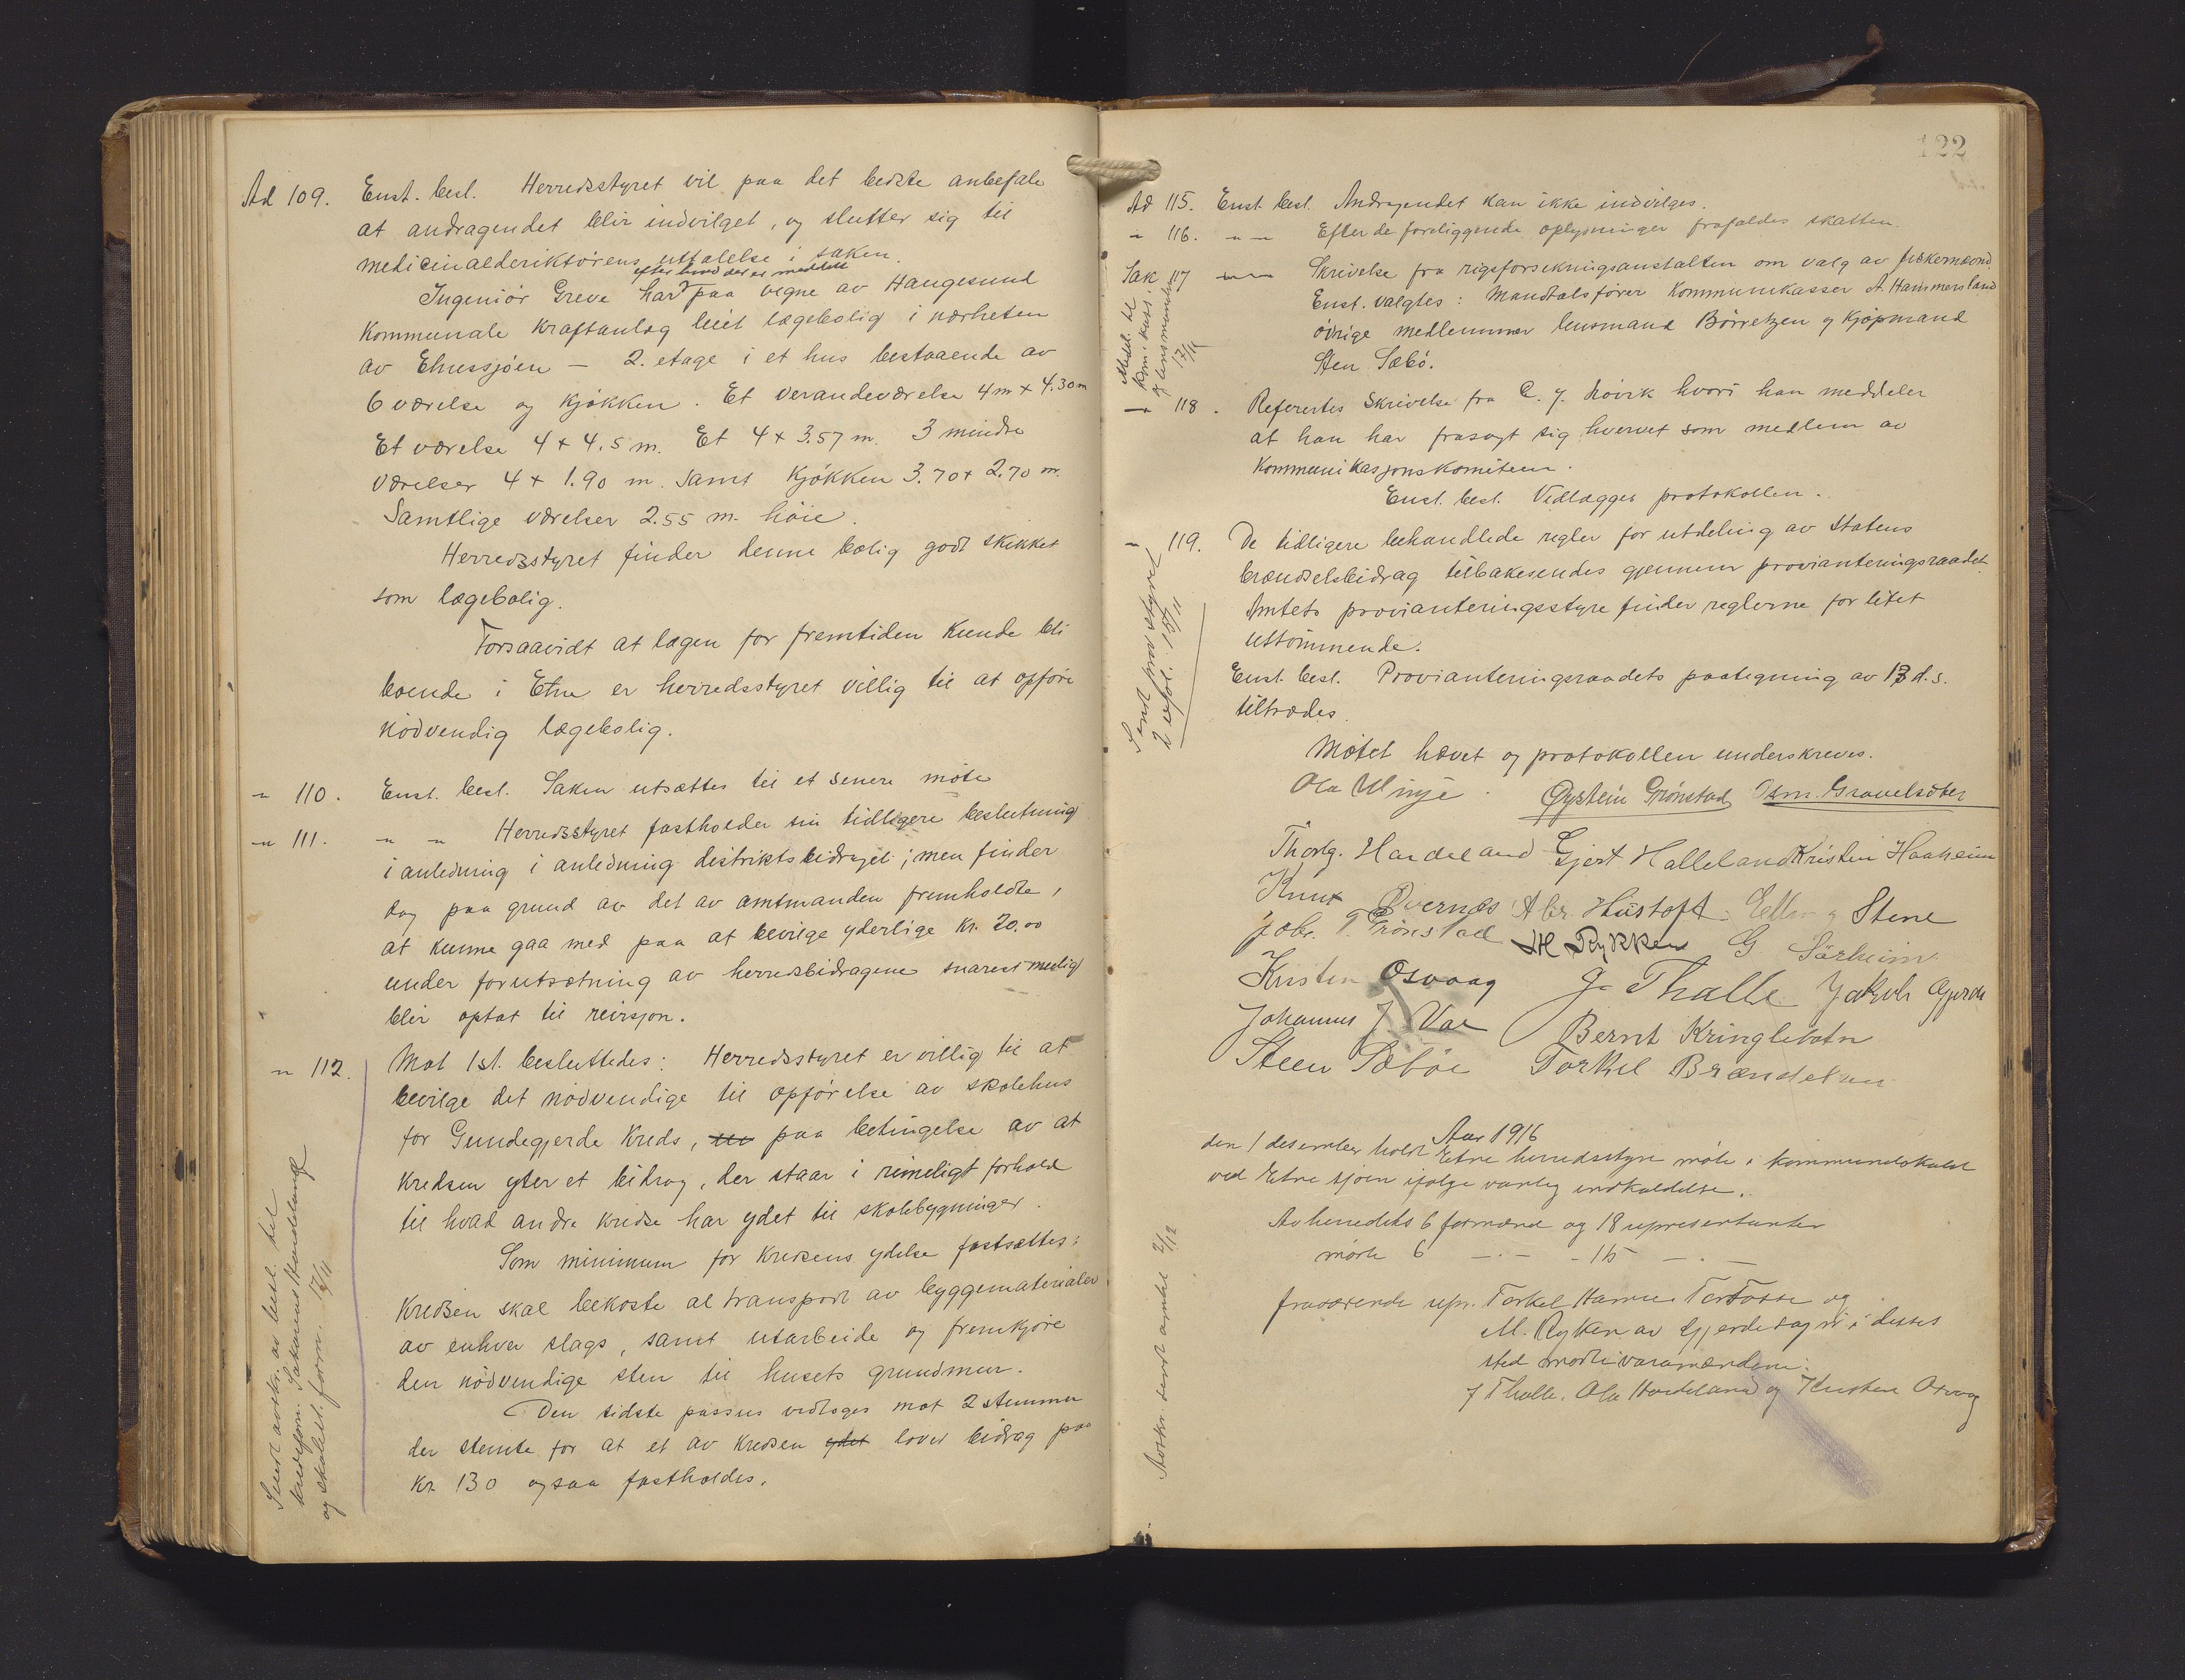 Ad 109. Enst. besl. Herredsstyret vil paa det bedste anbefale
at andragendet blir indvilget, og slutter sig til
medicinalderiktørens uttalelse i saken.
efter hvad der er meddelt
Ingeniør Greve har paa vegne av Haugesund
Kommunale Kraftanlæg leiet lægebolig i nærheten
av Etnessjøen — 2. etage i et hus bestaaende av
6 værelse og kjøkken. Et verandeværelse 4 m x 4.30 m
Et værelse 4 x 4.5 m. Et 4 x 3.57 m. 3 mindre
værelser 4 x 1.90 m. samt kjøkken 3.70 x 2.70 m.
Samtlige værelser 2.55 m. høie.
Herredsstyret finder denne bolig godt skikket
som lægebolig.
Forsaavidt at lægen for fremtiden kunde bli
boende i Etne er herredsstyret villig til at opføre
nødvendig lægebolig.
" 110. Enst. besl. Saken utsættes til et senere møte
" 111. " " Herredsstyret fastholder sin tidligere beslutning
i anledning i anledning distriktsbidraget; men finder
dog paa grund av det av amtmanden fremholdte,
at kunne gaa med paa at bevilge yderlige kr. 20.00
under forutsætning av herredsbidragene snarest mulig
blir optat til reivsjon.
" 112. Mot 1 st. besluttedes: Herredsstyret er villig til at
bevilge det nødvendige til opførelse av skolehus
for Gundegjerde Kreds, paa betingelse av at
kredsen yter et bidrag, der staar i rimeligt forhold
til hvad andre kredse har ydet til skolebygninger.
Som minimum for kredsens ydelse fastsættes:
Kredsen skal bekoste al transport av byggematerialer
av enhver slags, samt utarbeide og fremkjøre
den nødvendige sten til husets grundmur.
Den sidste passus vedtoges mot 2 stemmer
der stemte for at et av kredsen ydet lovet bidrag paa
kr. 130 ogsaa fastholdes.
Sendt avskr. av besl. til
og skolest. form. 17/11
122
Ad 115. Enst. besl. Andragendet kan ikke indvilges.
" 116. " " Efter de foreliggende oplysninger frafaldes skatten.
Sak 117 " " Skrivelse fra rigsforsekringsanstalten om valg av fiskernævnd.
Enst. valgtes: Mandtalsfører Kommunekasser A. Hammersland
øvrige medlemmer lensmand Børretzen og kjøpmand
Sten Sæbø.
Medd. til
Kom. kass.
og lensmanden
17/11
" 118. Referertes skrivelse fra C. J. Røvik hvori han meddeler
at han har frasagt sig hvervet som medlem av
Kommunikasjonskomiteen.
Enst. besl. Vedlægges protokollen.
" 119. De tidligere behandlede regler for utdeling av Statens
brændselsbidrag tilbakesendes gjennem provianteringsraadet.
Amtets provianteringsstyre finder reglerne for litet
uttømmende.
Enst. besl. Provianteringsraadets paategning av 13 d.s.
tiltrædes.
Sendt prov. styret
Møtet hævet og protokollen underskreves.
Ola Vinje Øystein Grønstad Rasm. Gravelsæter
Thorlg. Handeland Gjert Halleland Kristen Haaheim
Knut Øvernes Abr. Hustoft Stene
Johs. T. Grønstad M Rykken G Sørheim
Kristen Osvaag J. Thalle Jakob Gjerde
Johannes J. Vae Bernt Kringlebotn
Steen Sæbøe Torkel Brændeland
Aar 1916
den 1 desember holdt Etne herredsstyre møte i kommunelokalet
ved Etne sjøen ifølge vanlig indkaldelse.
Av herredets 6 formænd og 18 representanter
møtte 6 — " — 15 — " —
fraværende repr. Torkel Hamre, Tor Tosse og
M. Ryken av Gjerde sogn i disses
sted møtte varamændene:
J Thalle. Ola Handeland og Kristen Osvaag
Avskr. sendt amtet 2/12